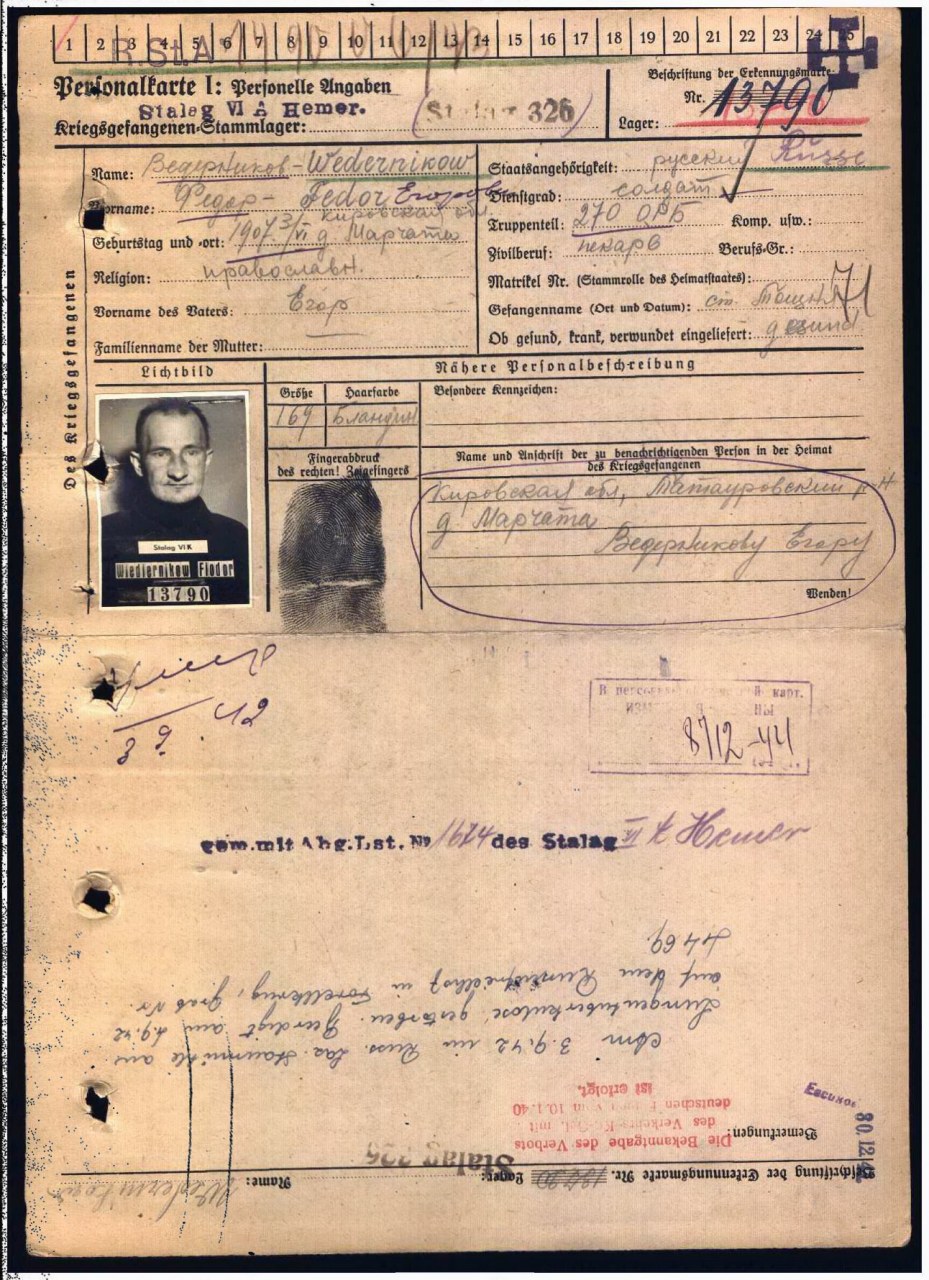 1 2 3 4 5 6 7 8 9 10 11 12 13 14 15 16 17 18 19 20 21 22 23 24 25
R.St.A
Personalkarte I: Personelle Angaben
Stalag VI A Hemer. (Stalag 326)
Kriegsgefangenen-Stammlager:
Beschriftung der Erkennungsmarke
Nr. 13790
Lager:
Des Kriegsgefangenen
Name: Ведерников - Wedernikow
Vorname: Федор - Fedor Егорович
Кировская обл.
Geburtstag und -ort: 1907 3/VI д. Марчата
Religion: православн.
Vorname des Vaters: Егор
Familienname der Mutter:
Staatsangehörigkeit: русский Russe
Dienstgrad: солдат
Truppenteil: 270 ОРБ Komp. usw.:
Zivilberuf: пекарь Berufs-Gr.:
Matrikel Nr. (Stammrolle des Heimatstaates):
Gefangenname (Ort und Datum): ст.
Ob gesund, krank, verwundet eingeliefert: gesund
Lichtbild
Nähere Personalbeschreibung
Größe Haarfarbe
169 Бландин
Besondere Kennzeichen:
Fingerabdruck
des rechten! Zeigefingers
Name und Anschrift der zu benachrichtigenden Person in der Heimat
des Kriegsgefangenen
Кировская обл, Татауровский р-н
д. Марчата
Ведерникову Егору
Wenden!
Stalag VI K
Wiediernikow Fiodor
13790
3 9. 42
В персональной карт.
8/12-44
gem.mit Abg.Lst.№ 11624 des Stalag VI A Hemer
Name: Wedernikow
Beschriftung der Erkennungsmarke Nr. Lager: Stalag 326
Bemerkungen:
Die Bekanntgabe des Verbots
des Verkehrs Kr.Gef. mit
deutschen Frauen vom 10.1.40
ist erfolgt.
30.12.4
Am 3.9.42 im Russ. Laz. Staumühle an
Lungentuberkulose gestorben. Beerdigt am 4.9.42
auf dem Russenfriedhof in Forellkrug, Grab Nr
4469.